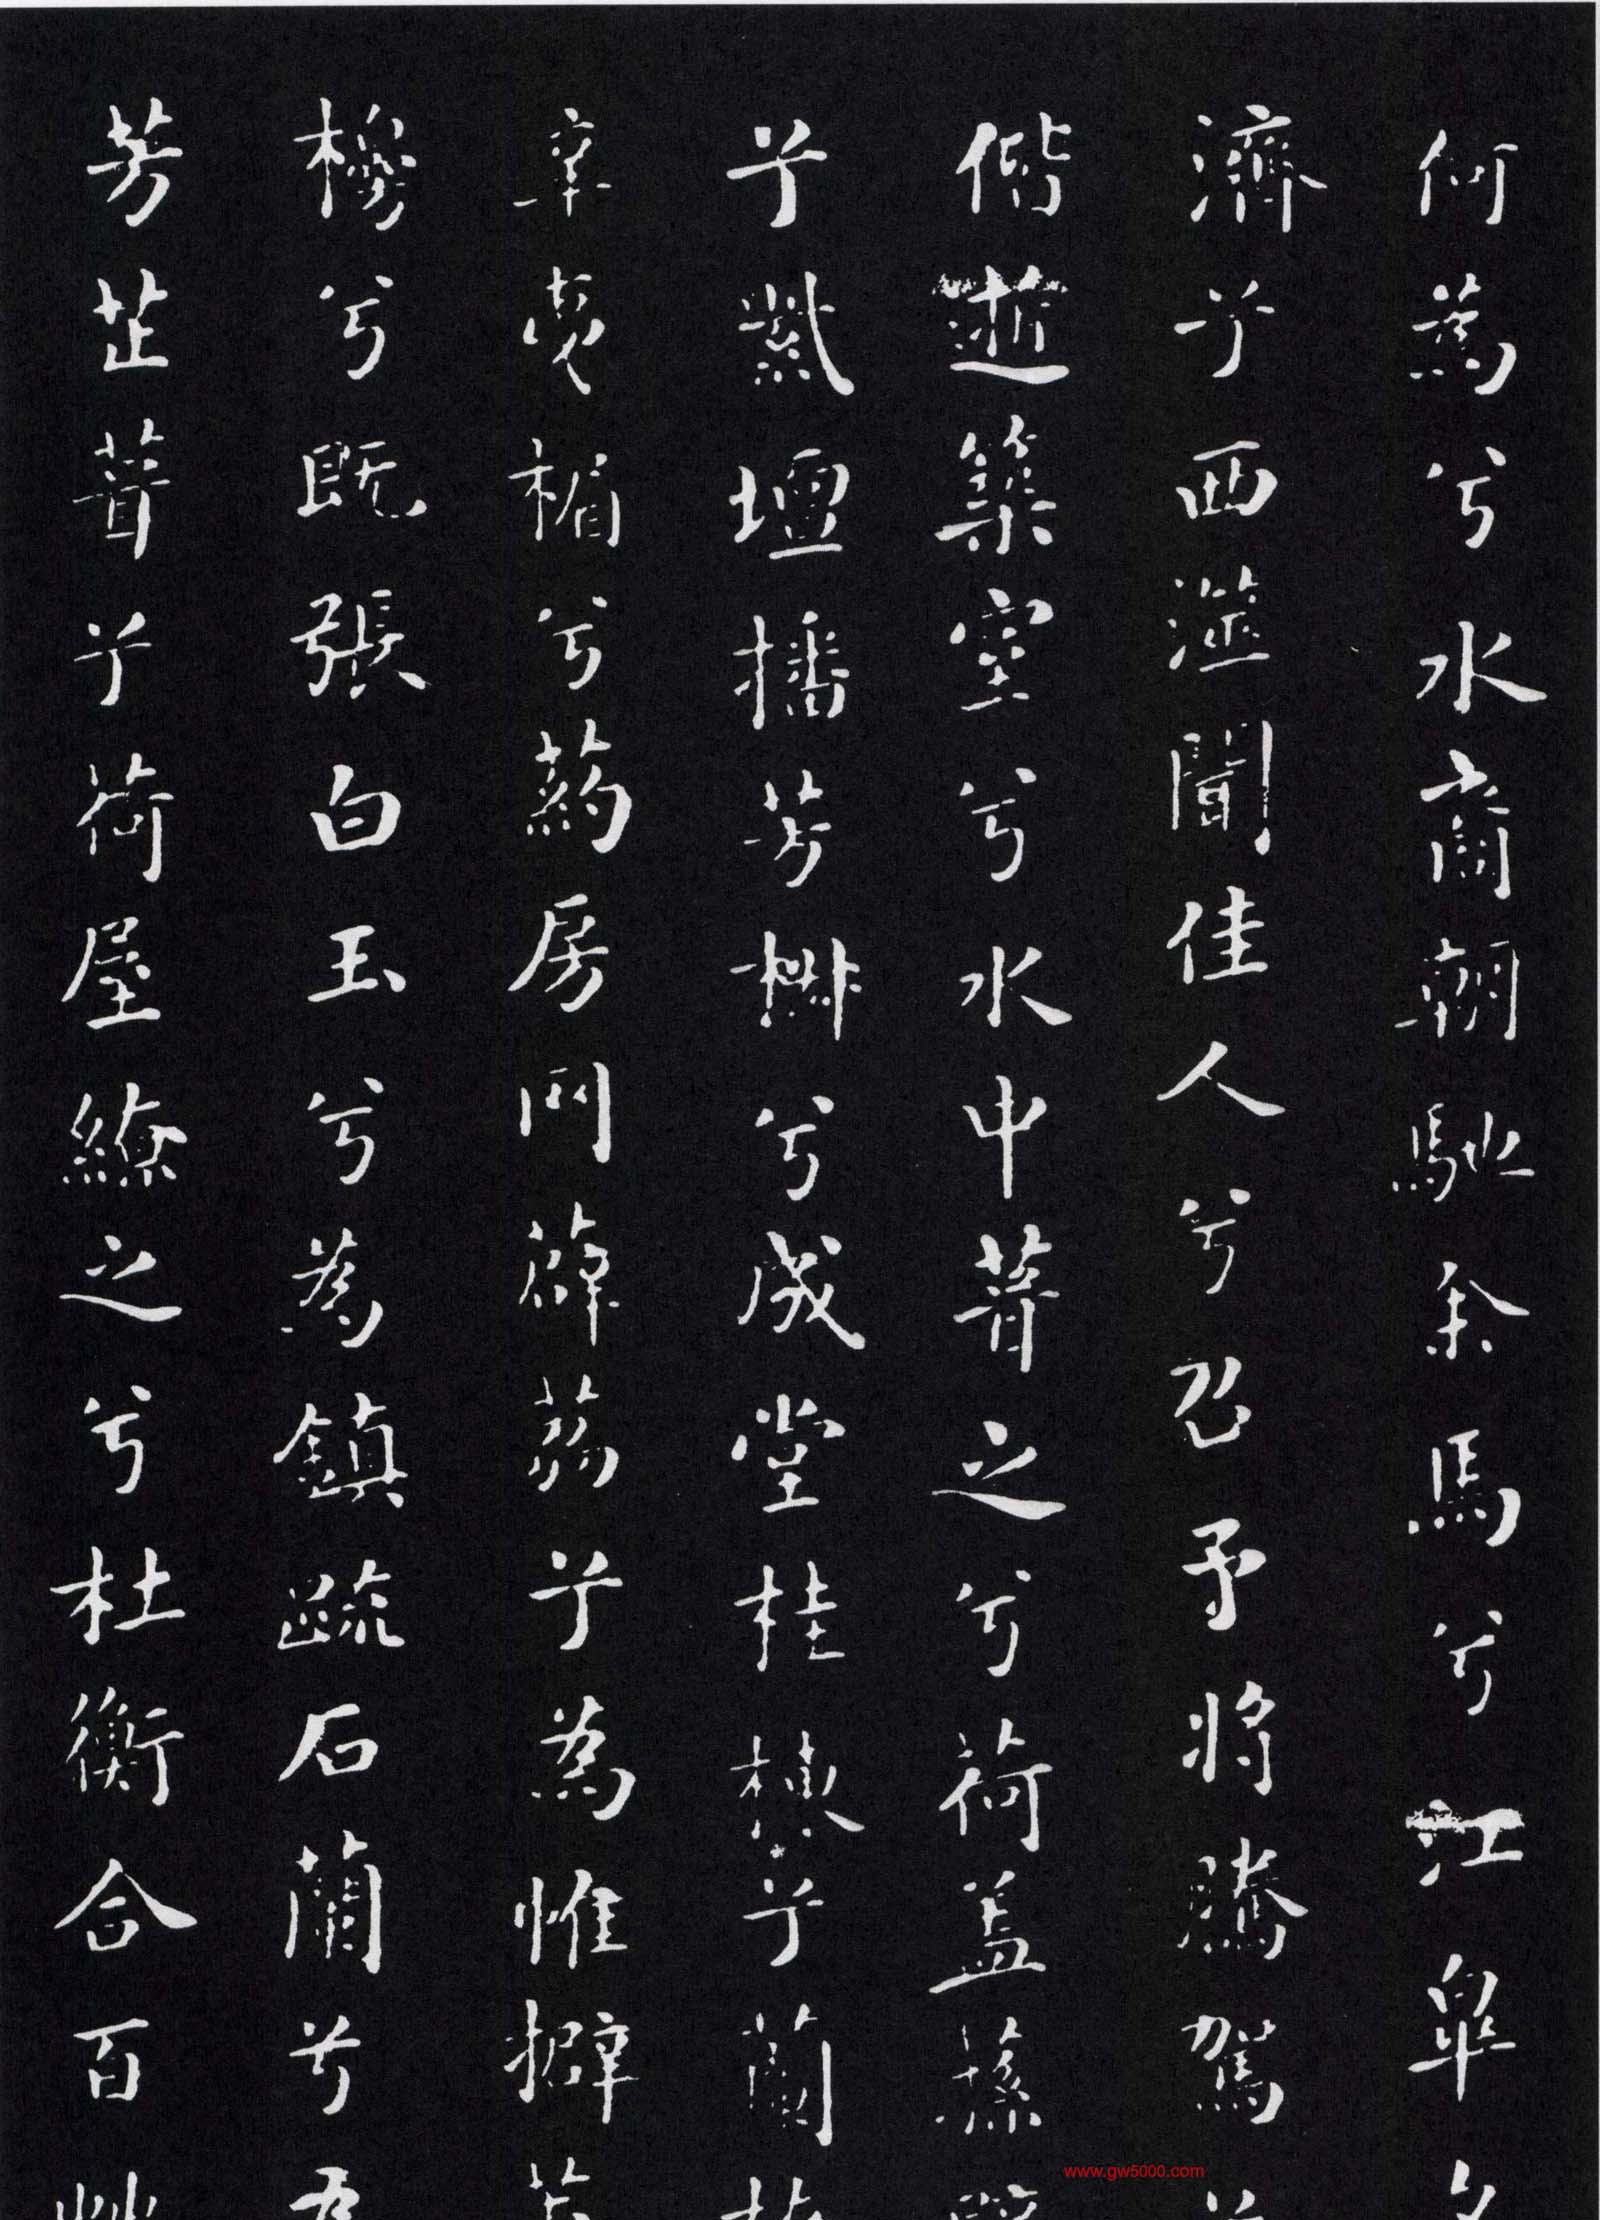 何為兮水裔朝馳余馬兮江皐夕
濟兮西澨聞佳人兮召予將騰駕
偕逝築室兮水中葺之兮荷蓋蓀
兮紫壇播芳椒兮成堂桂棟兮蘭
辛夷楣兮葯房网薜荔兮為惟擗
櫋兮既張白玉兮為鎮疏石蘭兮為
芳芷葺兮荷屋繚之兮杜衡合百艸
www.gw5000.com